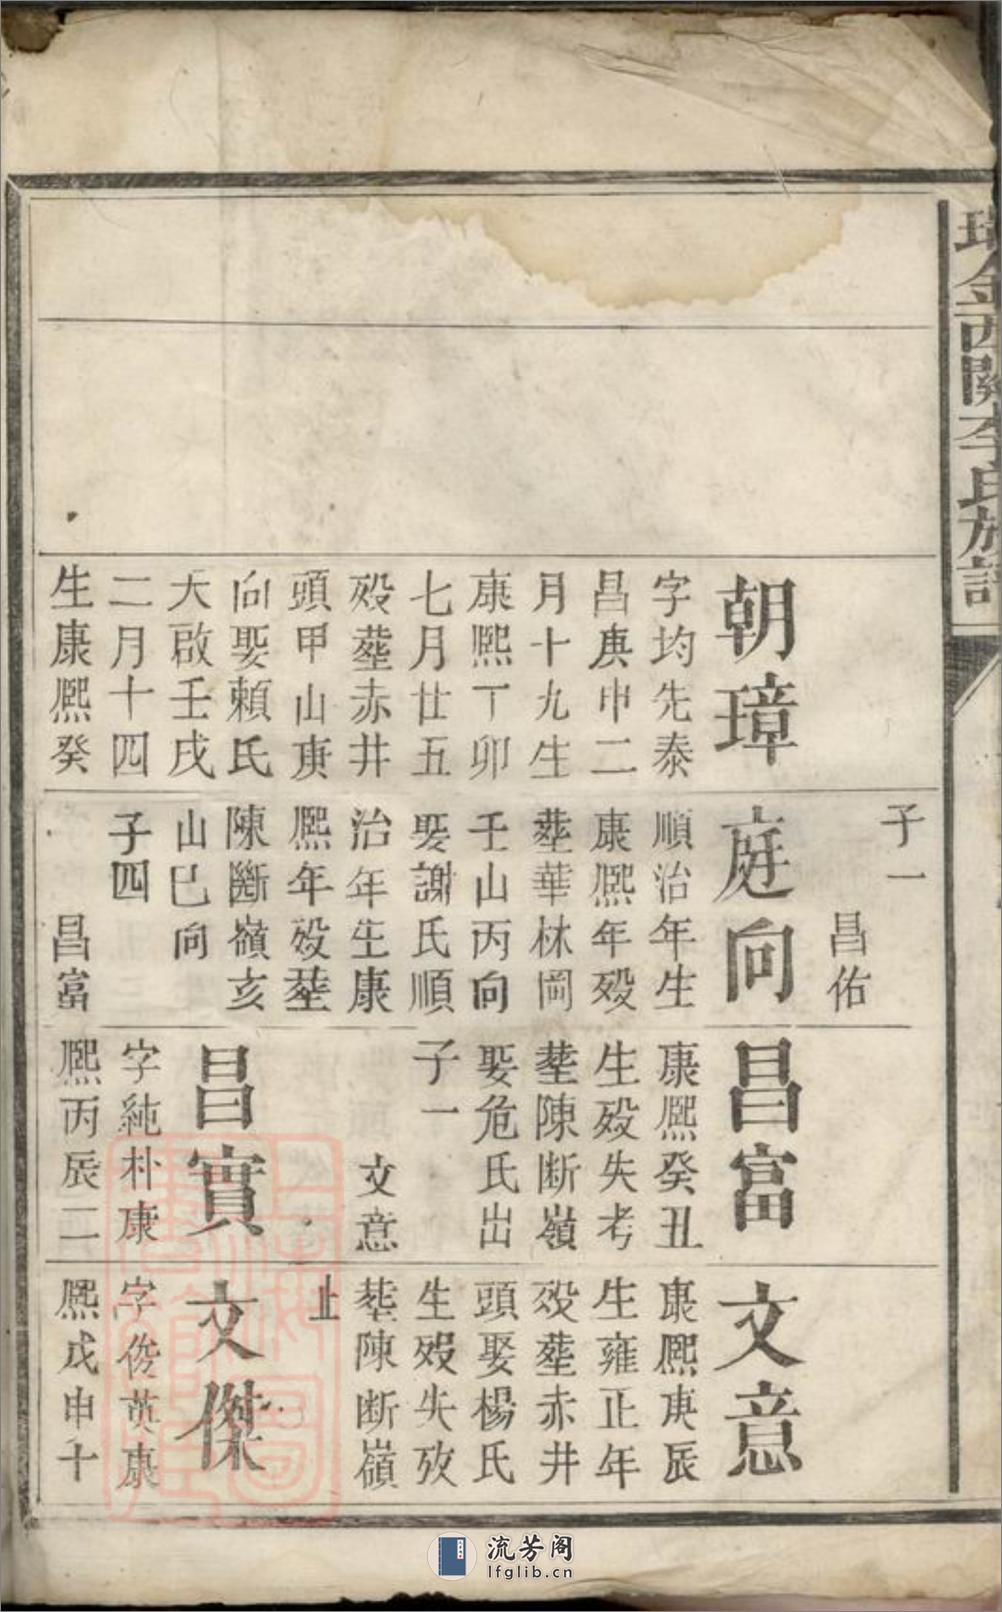 瑞金西關李氏族譜
朝璋
字均先泰
昌庚申二
月十九生
康熙丁卯
七月廿五
歿塟赤井
頭甲山庚
向娶賴氏
天啟壬戌
二月十四
生康熙癸
子一
昌佑
庭向
順治年生
康熙年歿
塟華林岡
壬山丙向
娶謝氏順
治年生康
熙年歿塟
陳斷嶺亥
山巳向
子四
昌富
昌富
康熙癸丑
生歿失考
塟陳断嶺
娶危氏出
子一
文意
昌實
字純朴康
熙丙辰二
文意
康熙庚辰
生雍正年
歿塟赤井
頭娶楊氏
生歿失攷
塟陳断嶺
止
文傑
字俊英康
熙戊申十
流芳阁
lfglib.cn